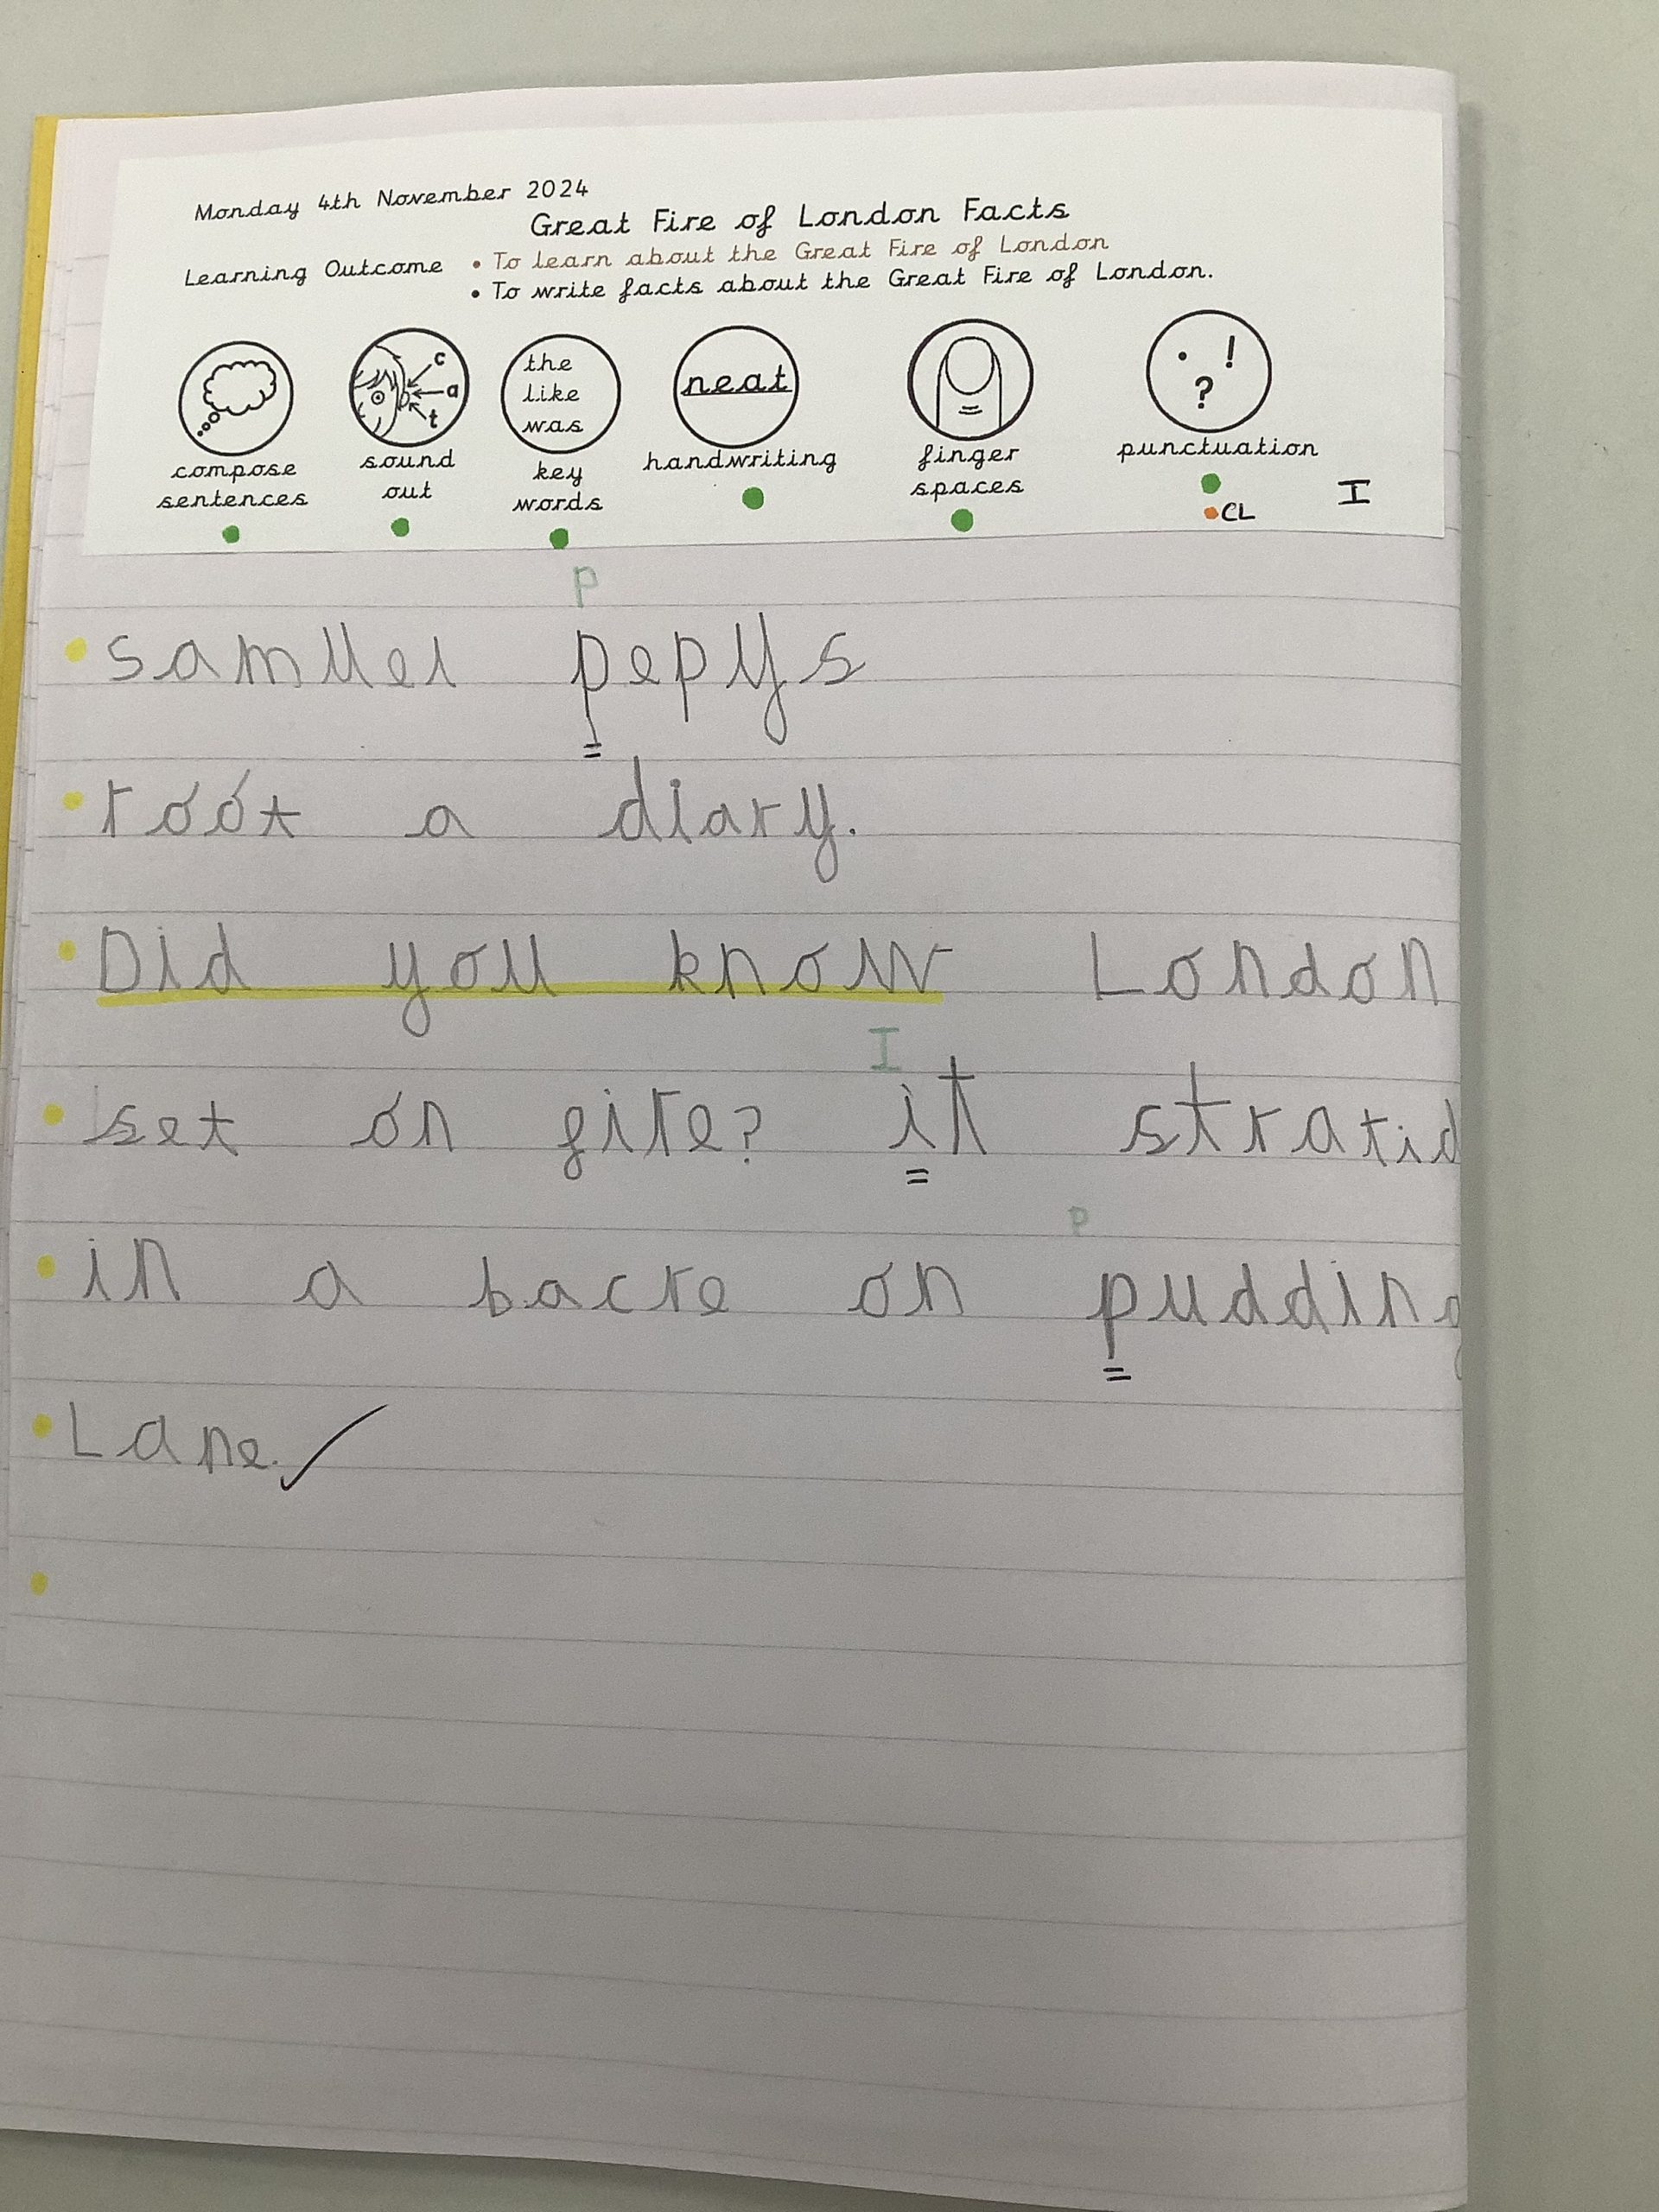 Monday 4th November 2024
Great Fire of London Facts
Learning Outcome • To learn about the Great Fire of London
• To write facts about the Great Fire of London.
c
a
t
the
like
was
neat
. !
?
compose
sentences
sound
out
key
words
handwriting
finger
spaces
punctuation
CL
I
P
samuel pepys
root a diary.
Did you know London
set on fire? it stratid
I
P
in a bacre on pudding
Lane.